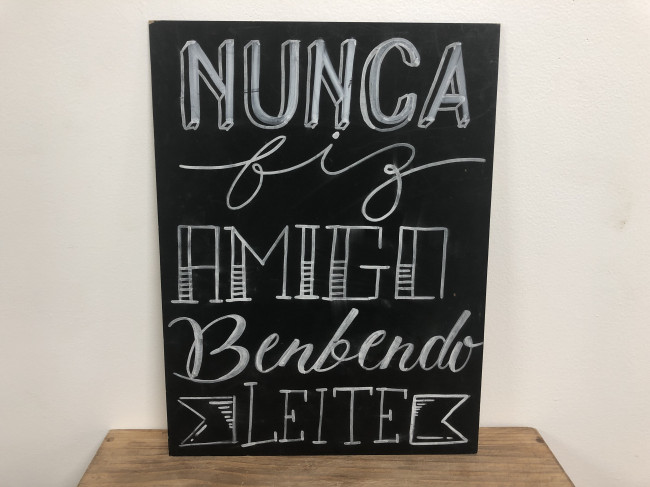 NUNCA
fiz
AMIGO
Benbendo
LEITE